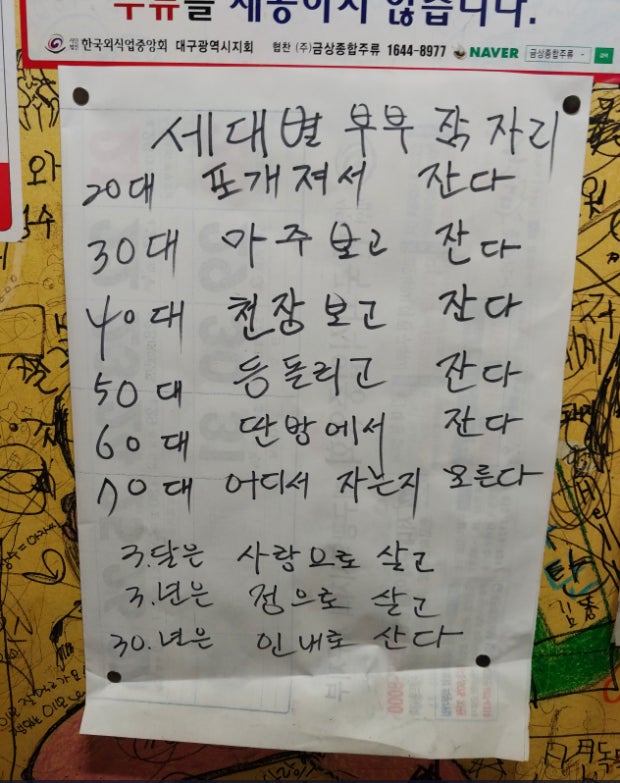 를 제공하지 않습니다.
한국외식업중앙회 대구광역시지회 협찬 (주)금상종합주류 1644-8977 NAVER 금상종합주류
세대별 부부 잠자리
20대 포개져서 잔다
30대 마주보고 잔다
40대 천장보고 잔다
50대 등돌리고 잔다
60대 딴방에서 잔다
70대 어디서 자는지 모른다
3.달은 사랑으로 살고
3.년은 정으로 살고
30.년은 인내로 산다
와
탄